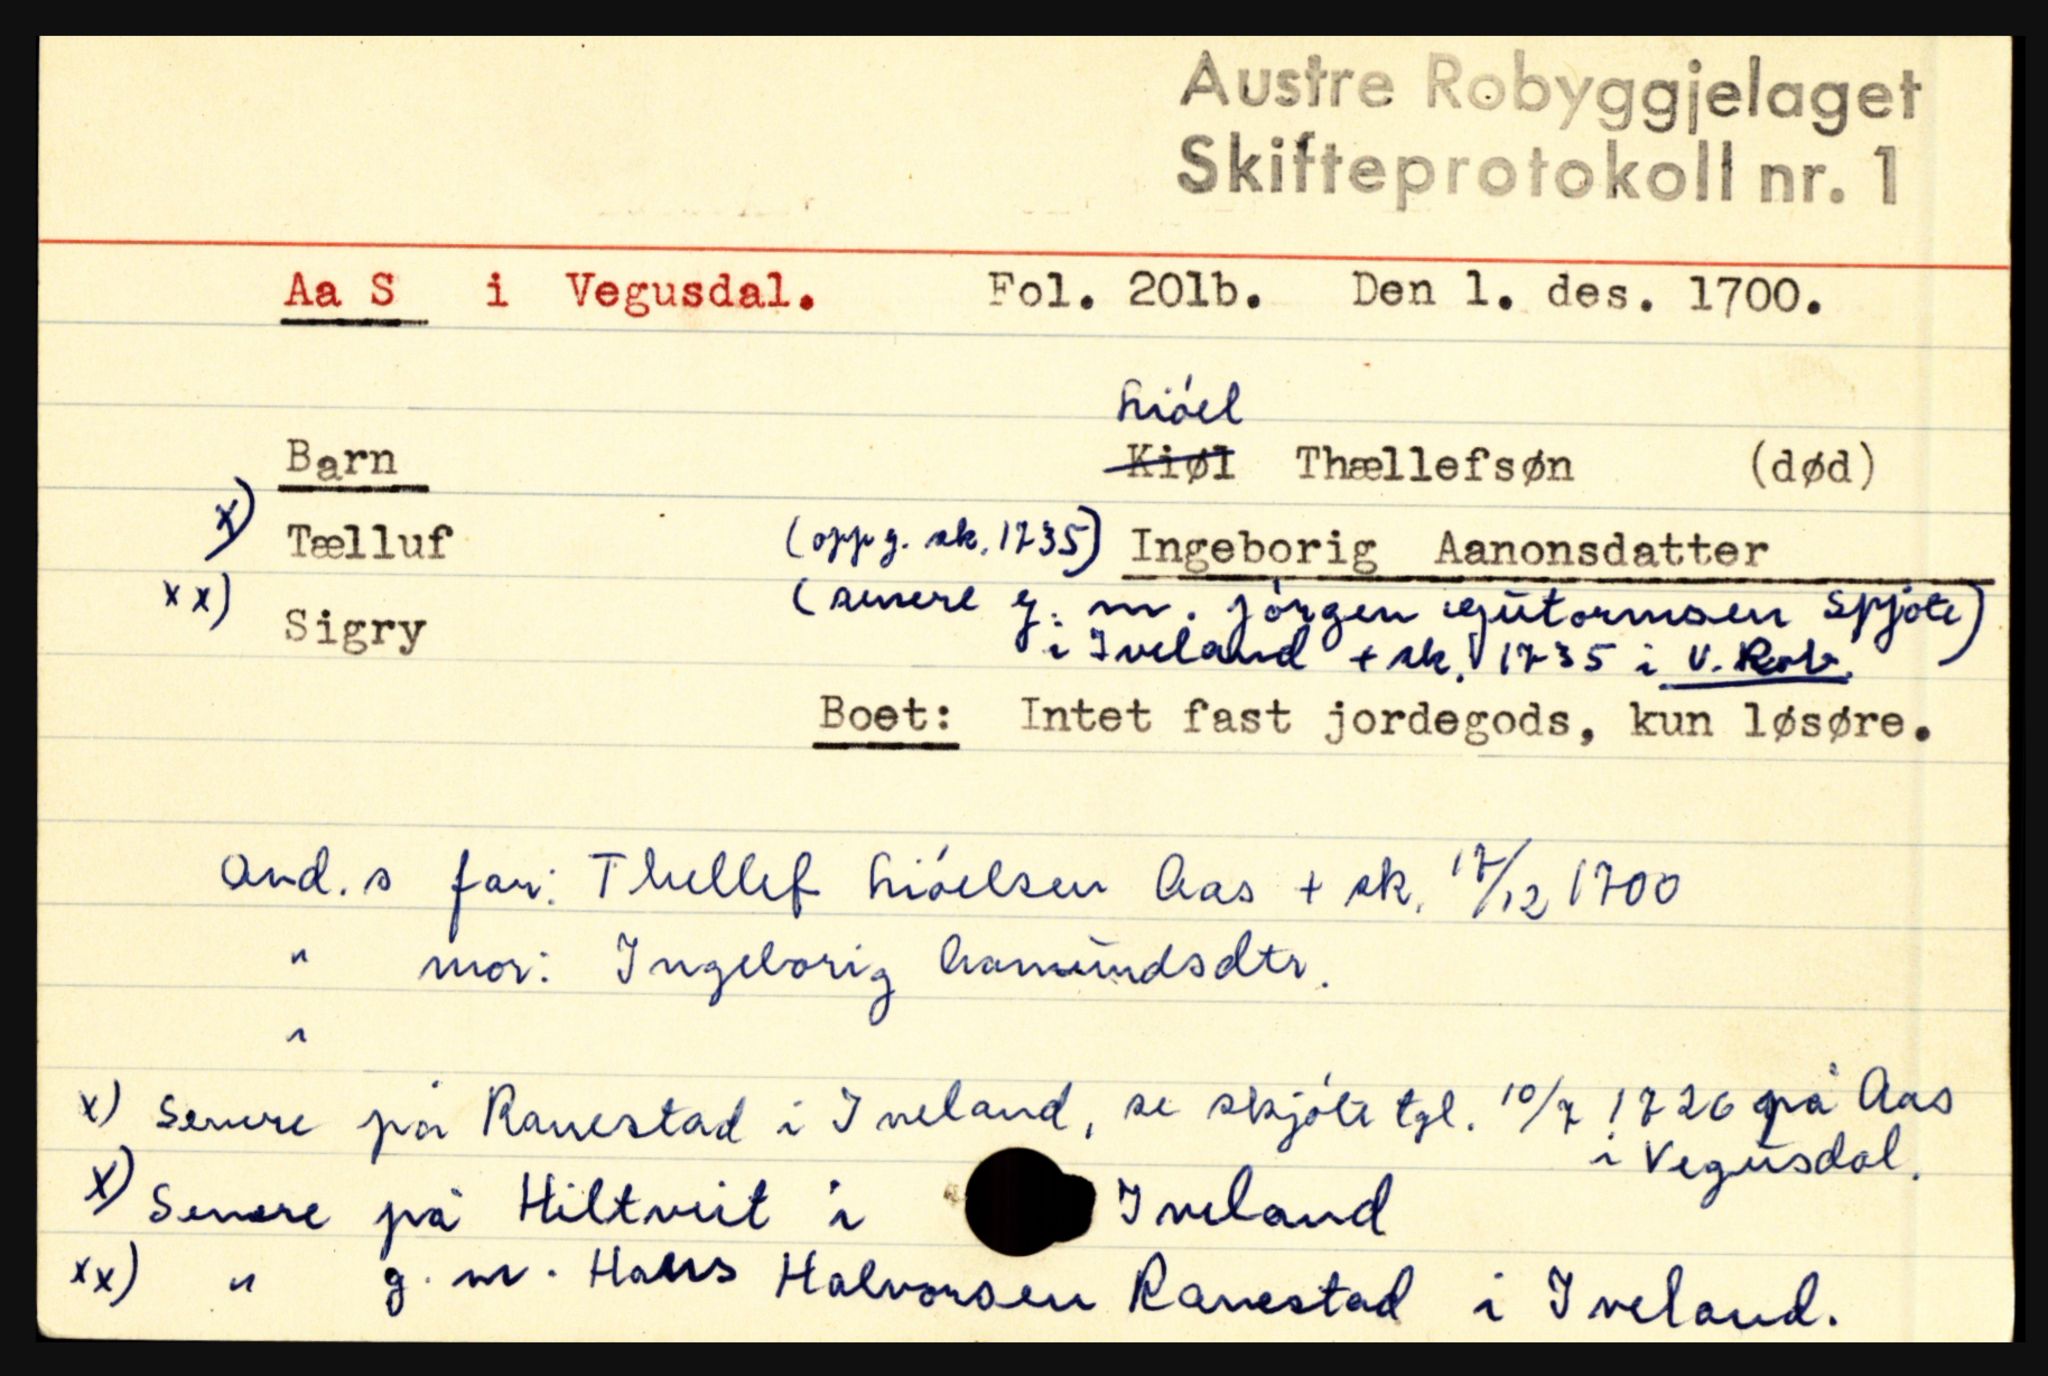 Austre Robyggjelaget
Skifteprotokoll nr. 1
Aa S i Vegusdal. Fol. 201b. Den 1. des. 1700.
Liöel
Barn Kiøl Thællefsøn (død)
x) Tælluf (oppg. sk. 1735) Ingeborig Aanonsdatter
xx) Sigry (senere g. m. Jörgen Gutormsen Spjote)
i Iveland + sk. 1735 i V. Rob.
Boet: Intet fast jordegods, kun løsøre.
avd. s far: Thellef Liöelsen Aas + sk. 17/12 1700
" mor: Ingeborig Aamundsdtr.
"
x) Senere på Ranestad i Iveland, se skjöte tgl. 10/7 1726 på Aas
i Vegusdal.
x) Senere på Hiltveit i Iveland
xx) " g. m. Hans Halvorsen Ranestad i Iveland.